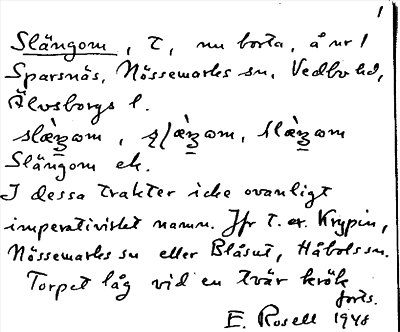 1
Slängom, t, nu borta, å nr 1
Sparsnäs, Nössemarks sn, Vedbo hd,
Älvsborgs l.
slæ̀ŋom, ʂlæ̀ŋom, slæ̀ŋom
Slängom ek.
I dessa trakter icke ovanligt
imperativiskt namn. Jfr t. ex. Krypin,
Nössemarks sn eller Blåsut, Håbols sn.
Torpet låg vid en tvär krök
forts.
E. Rosell 1948